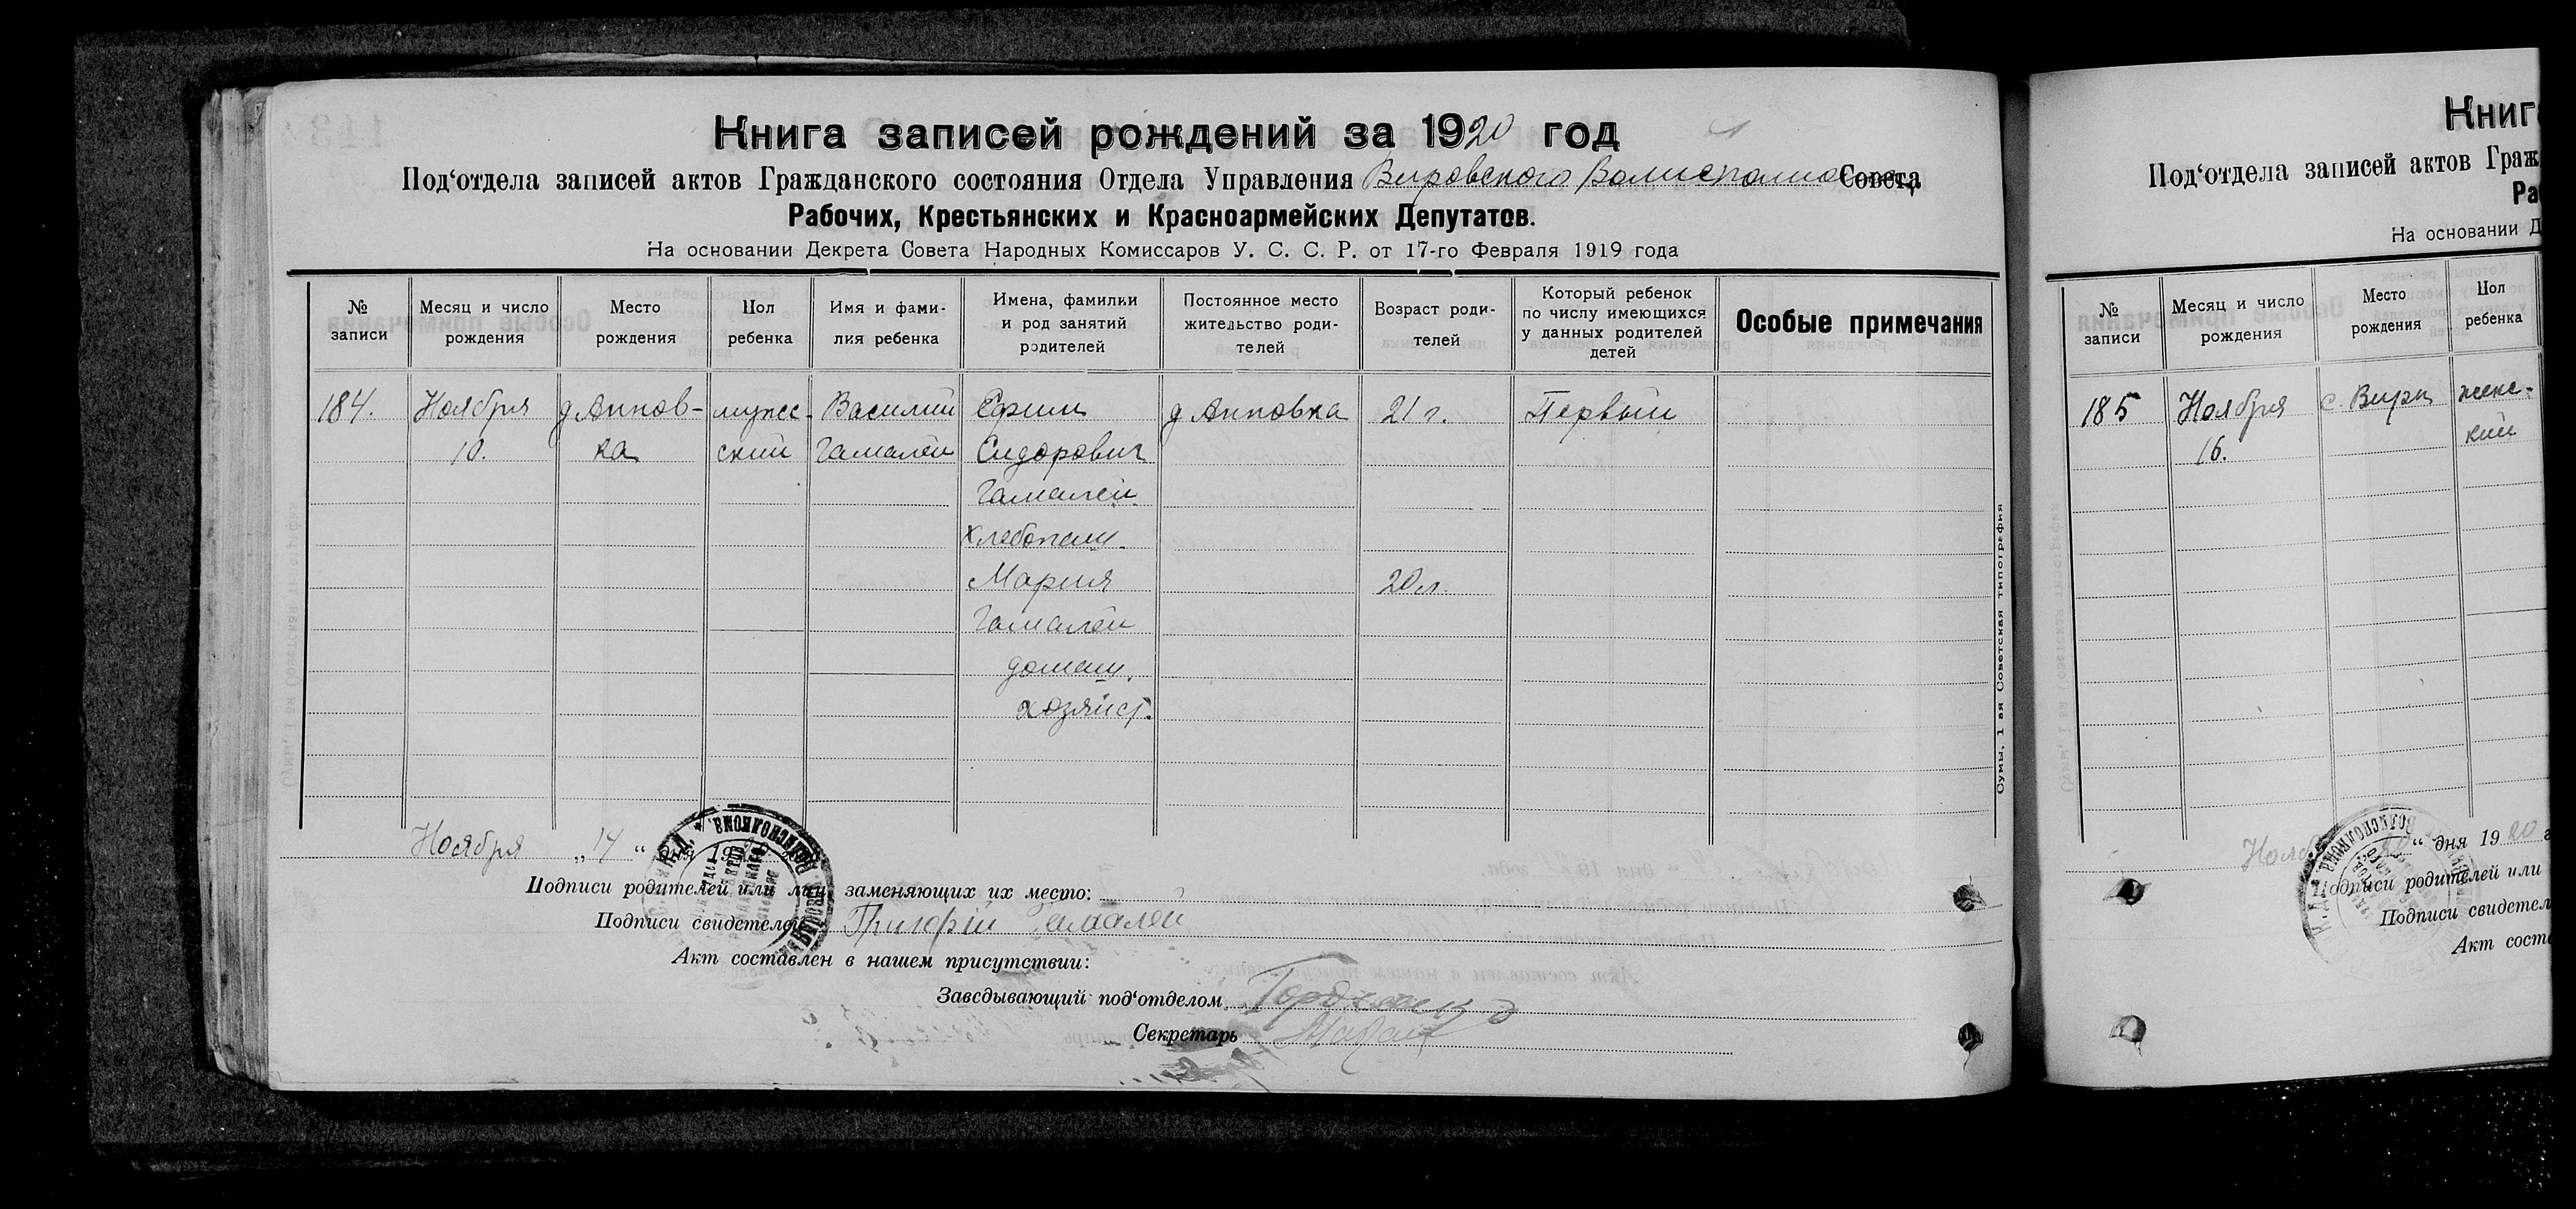 Книга записей рождений за 1920 год
Под‘отдела записей актов Гражданского состояния Отдела Управления Вировского Волисполкома Совета
Рабочих, Крестьянских и Красноармейских Депутатов.
На основании Декрета Совета Народных Комиссаров У. С. С. Р. от 17-го Февраля 1919 года
№ записи
Месяц и число рождения
Место рождения
Пол ребенка
Имя и фамилия ребенка
Имена, фамилии и род занятий родителей
Постоянное место жительство родителей
Возраст родителей
Который ребенок по числу имеющихся у данных родителей детей
Особые примечания
184. Ноября д. Анновмужс- Василий Ефим д Анновка 21 г. Первый
10. ка ский Гамалей Сидорович
Гамалей
хлебопаш.
Мария 20 л.
Гамалей
домаш.
хозяйст.
Ноября „14“ дня 19
Подписи родителей или лиц заменяющих их место:
Подписи свидетелей Григорій Гамалей
Акт составлен в нашем присутствии:
Заведывающий под‘отделом
Секретарь
Сумы, 1 ая Советская типография
Книга
Под‘отдела записей актов Граж
Ра
На основании Д
№ записи
Месяц и число рождения
Место рождения
Пол ребенка
185 Ноября с. Виры женс-
16. кий
“ дня 1920 г
Подписи родителей или
Подписи свидетел
Акт соста